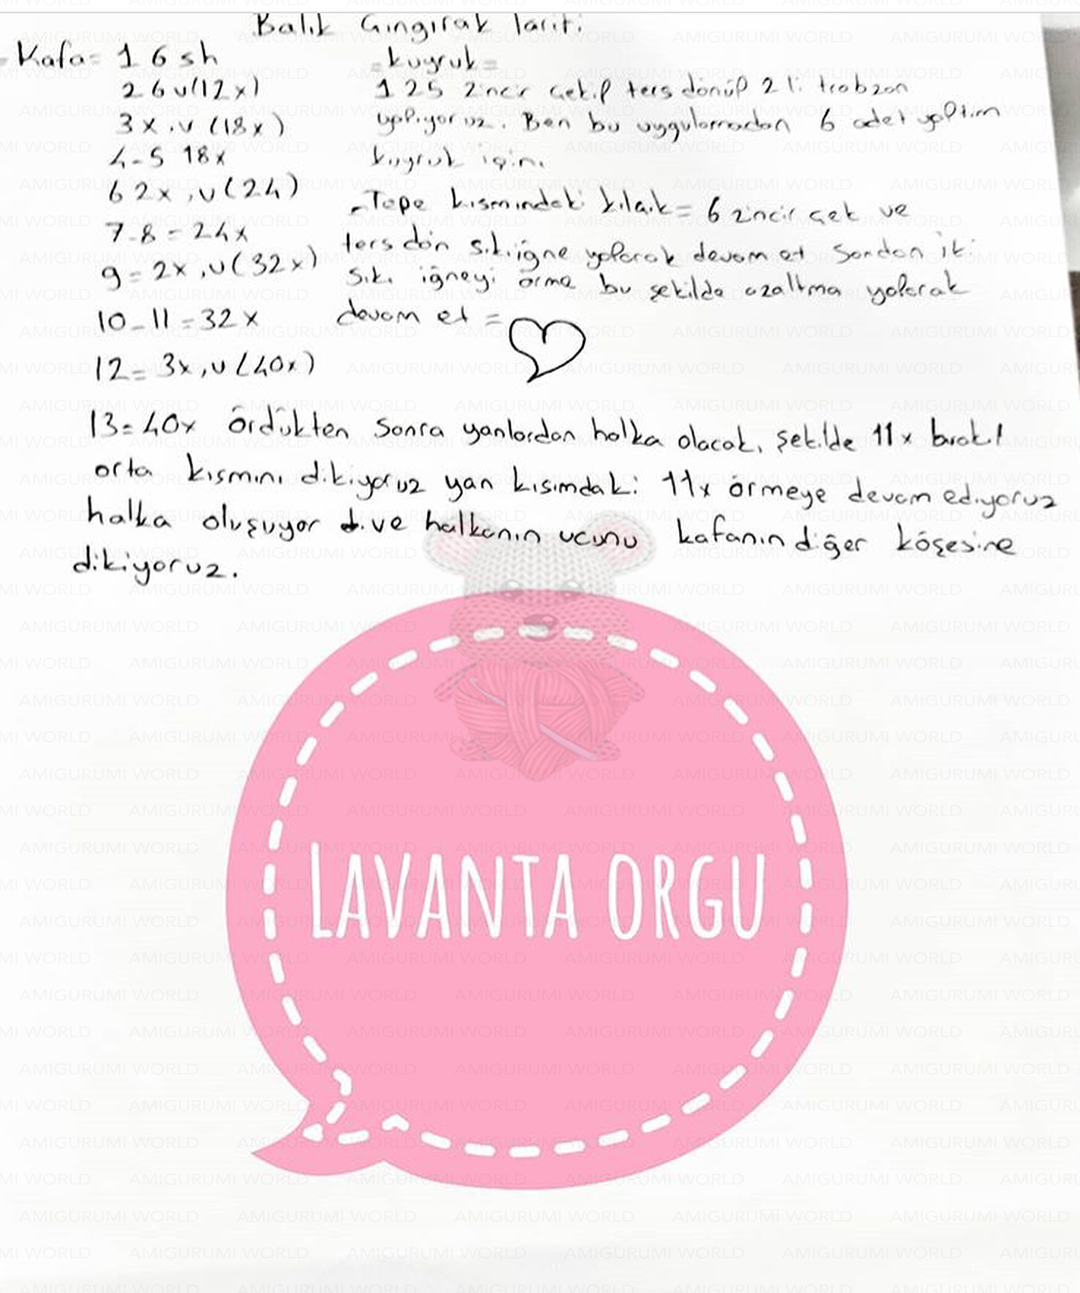 Balık Çıngırak tarifi
- Kafa = 1 6 sh
2 6 v (12x)
3 x, v (18x)
4-5 18x
6 2x, v (24)
7-8 = 24x
9 = 2x, v (32x)
10-11 = 32x
12 = 3x, v (40x)
= kuyruk =
1 25 zincir çekip ters dönüp 2 li trabzan
yapıyoruz. Ben bu uygulamadan 6 adet yaptım
kuyruk için.
- Tepe kısmındaki = 6 zincir çek ve
ters dön sık iğne yaparak devam et Sondan iki
sık iğneyi örme bu şekilde azaltma yaparak
devam et =
13 = 40x ördükten sonra yanlardan halka olacak şekilde 11x bırak!
orta kısmını dikiyoruz yan kısımdaki 11x örmeye devam ediyoruz
halka oluşuyor ve halkanın ucunu kafanın diğer köşesine
dikiyoruz.
LAVANTA ORGU
AMIGURUMI WORLD